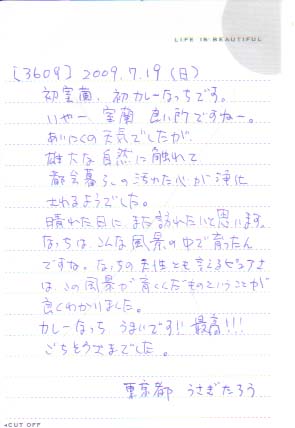 LIFE IS BEAUTIFUL
[3609] 2009.7.19(日)
初室蘭、初カレーなっちです。
いやー、室蘭 良い所ですねー。
あいにくの天気でしたが、
雄大な自然に触れて
都会暮らしの汚れた心が浄化
されるようでした。
晴れた日に、また訪れたいと思います。
なっちは、こんな風景の中で育ったん
ですね。なっちの素性とも言えるピュアさ
は、この風景が育くんだものということが
良くわかりました。
カレーなっち うまいです!! 最高!!!
ごちそうさまでした。
東京都 うさぎたろう
◂CUT OFF